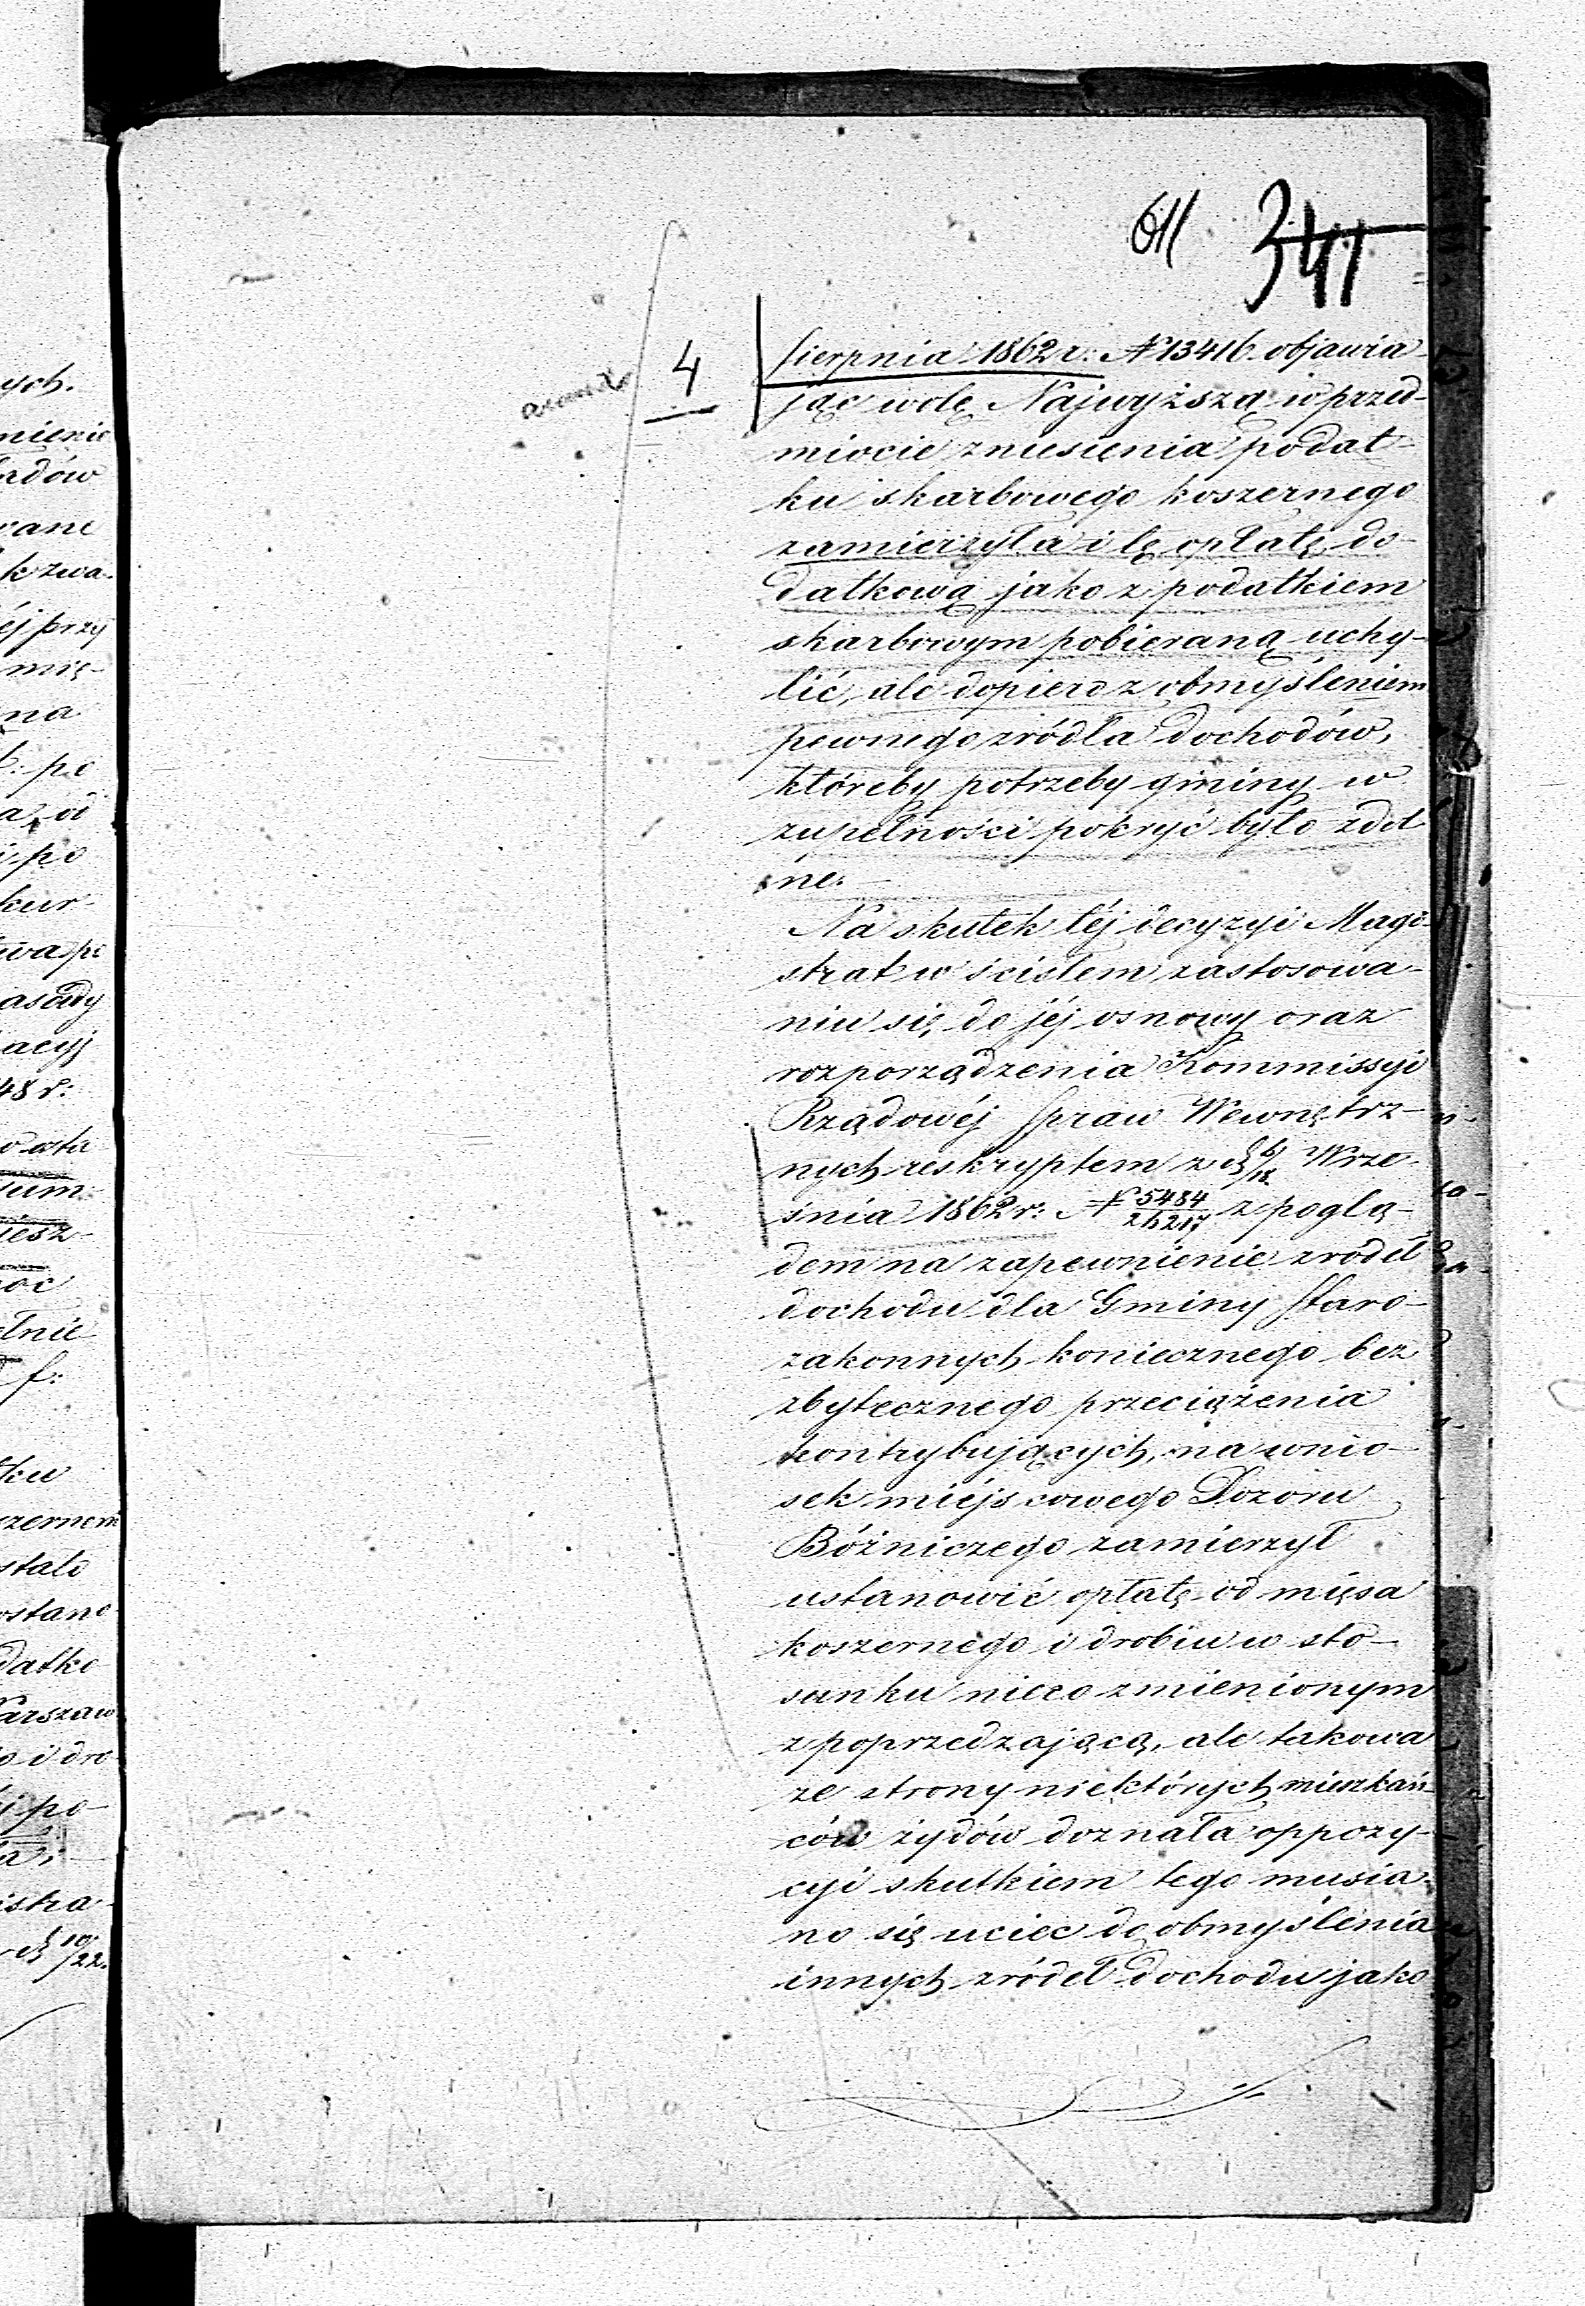 611 341
4
Sierpnia 1862 r: N 13416. objawia-
jąc wolę Najwyższą w przed-
miocie zniesienia podat-
ku skarbowego koszernego
zamierzyła i tę opłatę do-
datkową jako z podatkiem
skarbowym pobieraną uchy-
lić, ale dopiero z obmyśleniem
pewnego źródła dochodów,
któreby potrzeby gminy w
zupełności pokryć było zdol
ne.—
Na skutek téj decyzyi Magi-
strat w ścisłem zastosowa-
niu się do jéj osnowy oraz
rozporządzenia Kommissyi
Rządowéj Spraw Wewnętrz-
nych reskryptem z d 6/18 Wrze-
śnia 1862 r: N 5484/26217 z poglą-
dem na zapewnienie źródeł
dochodu dla Gminy Staro-
zakonnych koniecznego bez
zbytecznego przeciążenia
kontrybujących, na wnio-
sek miejscowego Dozoru
Bóżniczego zamierzył
ustanowić opłatę od mięsa
koszernego i drobiu w sto-
sunku nieco zmienionym
z poprzedzającą, ale takowa
ze strony niektórych mieszkań-
ców żydów doznała oppozy-
cyi skutkiem tego musia-
no się uciec do obmyślenia
innych źródeł dochodu jako